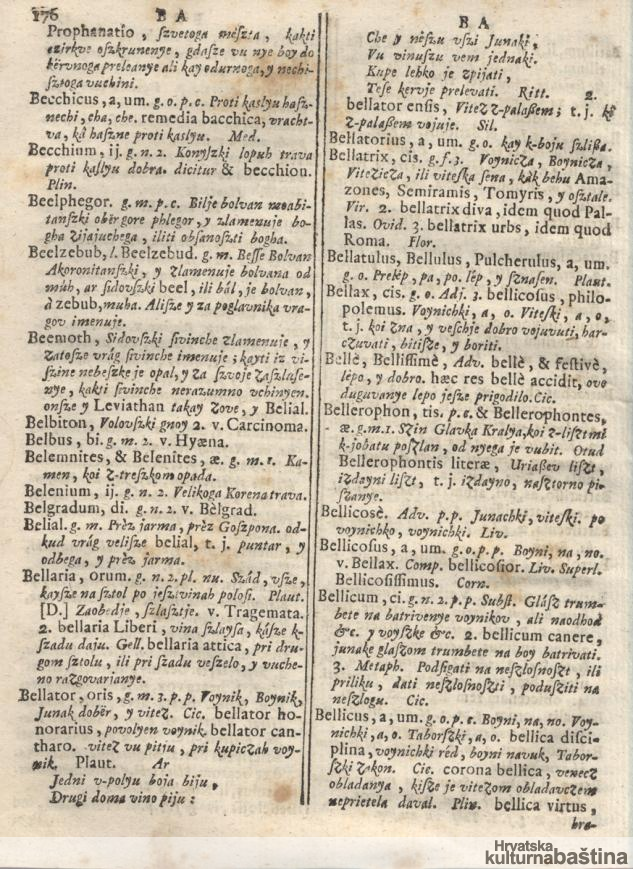 176 B A
Prophanatio, szvetoga mèszta, kakti
czirkve oszkrunenye, gdasze vu nye boy do
kèrvnoga preleanye ali kay odurnoga, y nechi-
sztoga vuchini.
Becchicus, a, um. g. o. p. c. Proti kaslyu hasz-
nechi, cha, che. remedia bacchica, vracht-
va, kà haszne proti kaslyu. Med.
Becchium, ij. g. n. 2. Konyszki lopuh trava
proti kaslyu dobra. dicitur & becchion.
Plin.
Beelphegor. g. m. p. c. Bilje bolvan
tanszki obèrgore phlegor, y zlamenuje bo-
gha zijajuchega, iliti obsanoszti bogha.
Beelzebub, l. Beelzebud. g. m. Besse Bolvan
Akoronitanszki, y zlamenuje bolvana od
mùh, ar sidovszki beel, ili bál, je bolvan,
à zebub, muha. Alisze y za poglavnika vra-
gov imenuje.
Beemoth, Sidovszki sivinche zlamenuje, y
zatosze vràg sivinche imenuje; kayti iz vi-
szine nebeszke je opal, y za szvoje zaszluse-
nye, kakti sivinche nerazumno vchinyen.
onsze y Leviathan takay zove, y Belial.
Belbiton, Volovszki gnoy 2. v. Carcinoma.
Belbus, bi. g. m. 2. v. Hyæna.
Belemnites, & Belenites, æ. g. m. 1. Ka-
men, koi z-treszkom opada.
Belenium, ij. g. n. 2. Velikoga Korena trava.
Belgradum, di. g. n. 2. v. Bèlgrad.
Belial. g. m. Prèz jarma, prèz Goszpona. od-
kud vràg velisze belial, t. j. puntar, y
odbega, y prèz jarma.
Bellaria, orum. g. n. 2. pl. nu. Szád, vsze,
kaysze na sztol po jesztvinah polosi. Plaut.
[D.] Zaobedje, szlasztje. v. Tragemata.
2. bellaria Liberi, vina szlaysa, kásze k-
szadu daju. Gell. bellaria attica, pri dru-
gom sztolu, ili pri szadu veszelo, y vuche-
no razgovarjanye.
Bellator, oris, g. m. 3. p. p. Voynik, Boynik,
Junak dobèr, y vitez. Cic. bellator ho-
norarius, povolyen voynik. bellator can-
tharo. vitez vu pitju, pri kupiczah voy-
nik. Plaut. Ar
Jedni v-polyu boja biju,
Drugi doma vino piju:
B A
Che y nèszu vszi Junaki,
Vu vinuszu vem jednaki.
Kupe lehko je zpijati,
Tese kervje prelevati. Ritt. 2.
bellator ensis, Vitez z-palaßem; t. j. kì
z-palaßem vojuje. Sil.
Bellatorius, a, um. g. o. kay k-boju szlißa.
Bellatrix, cis. g. f. 3. Voynicza, Boynicza,
Vitezicza, ili viteska sena, kàk behu Ama-
zones, Semiramis, Tomyris, y osztale.
Vir. 2. bellatrix diva, idem quod Pal-
las. Ovid. 3. bellatrix urbs, idem quod
Roma. Flor.
Bellatulus, Bellulus, Pulcherulus, a, um.
g. o. Prelép, pa, po. lép, y sznasen. Plaut.
Bellax, cis. g. o. Adj. 3. bellicosus, philo-
polemus. Voynichki, a, o. Viteski, a, o,
t. j. koi zna, y veschje dobro vojuvuti, har-
czuvati, bitisze, y boriti.
Bellè, Bellissimè, Adv. bellè, & festivè,
lèpo, y dobro. hæc res bellè accidit, ovo
duguvanye lepo jeszе prigodilo. Cic.
Bellerophon, tis. p. c. & Bellerophontes,
æ. g. m. 1. Szin Glavka Kralya, koi z-lisztmi
k-jobatu poszlan, od nyega je vubit. Otud
Bellerophontis literæ, Uriaßev liszt,
izdayni liszt, t. j. izdayno, nasztorno pi-
szanye.
Bellicosè. Adv. p. p. Junachki, viteski. po
voynichko, voynichki. Liv.
Bellicosus, a, um. g. o. p. p. Boyni, na, no.
v. Bellax. Comp. bellicosior. Liv. Superl.
Bellicosissimus. Corn.
Bellicum, ci. g. n. 2. p. p. Subst. Glász trum-
bete na batrivenye voynikov, ali naodhod
&c. y voyszke &c. 2. bellicum canere,
junake glaszom trumbete na boy batrivati.
3. Metaph. Podsigati na neszlosnoszt, ili
priliku, dati neszlosnoszti, podusziti na
neszlogu. Cic.
Bellicus, a, um. g. o. p. c. Boyni, na, no. Voy-
nichki, a, o. Taborszki, a, o. bellica disci-
plina, voynichki réd, boyni navuk, Tabor-
szki zakon. Cic. corona bellica, venecz
obladanya, kisze je vitezom obladavczem
neprietela daval. Plin. bellica virtus,
bra-
Hrvatska
kulturnabaština